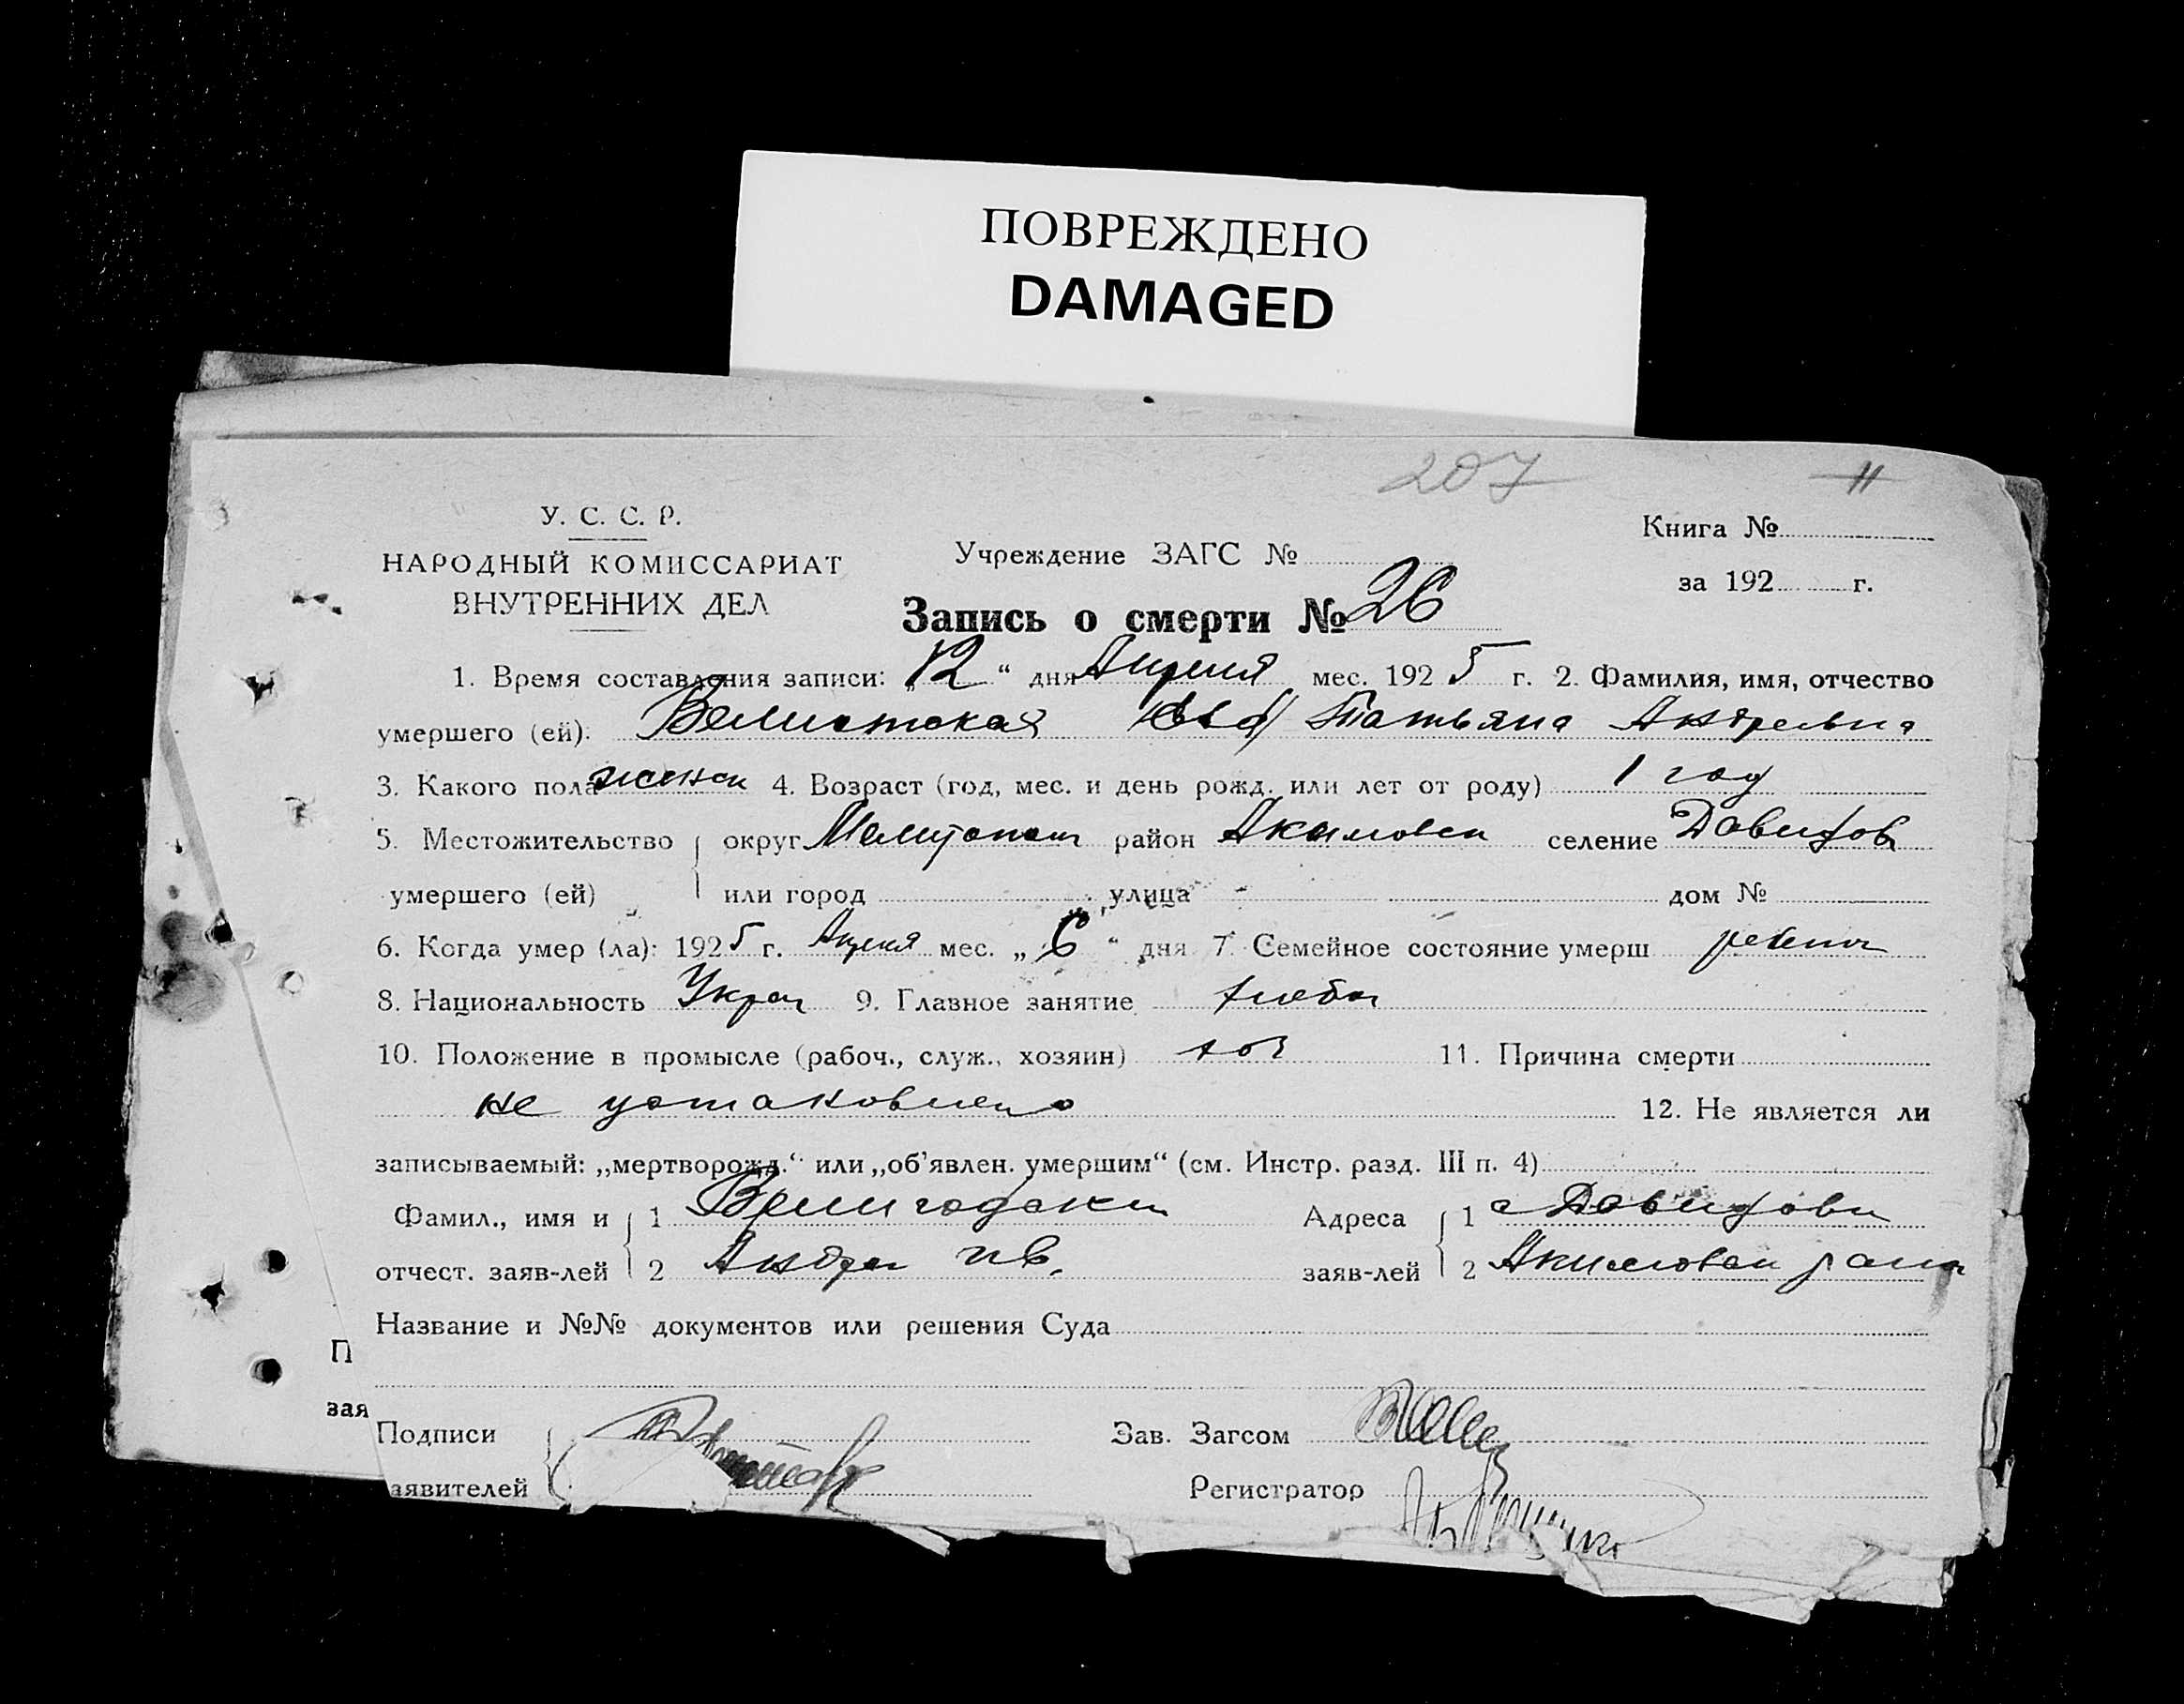 ПОВРЕЖДЕНО
DAMAGED
207 11
У. С. С. Р.
Книга №
НАРОДНЫЙ КОМИССАРИАТ
Учреждение ЗАГС №
за 192 г.
ВНУТРЕННИХ ДЕЛ
Запись о смерти № 26
1. Время составления записи: „12“ дня Апреля мес. 1925 г. 2. Фамилия, имя, отчество
умершего (ей): Татьяна Андреевна
3. Какого пола женск 4. Возраст (год, мес. и день рожд. или лет от роду) 1 год
5. Местожительство округ Мелитопол район Акимовск селение Давидов
умершего (ей) или город улица дом №
6. Когда умер (ла): 1925 г. Апреля мес. „6“ дня 7. Семейное состояние умерш ребенок
8. Национальность Украи 9. Главное занятие хлебо
10. Положение в промысле (рабоч., служ., хозяин) хоз 11. Причина смерти
не установлено 12. Не является ли
записываемый: „мертворожд.“ или „об'явлен. умершим“ (см. Инстр. разд. III п. 4)
Фамил., имя и 1 Адреса 1 с Давидовки
отчест. заяв-лей 2 Андрей Ив. заяв-лей 2 Акимовск района
Название и №№ документов или решения Суда
П
зая
Подписи Зав. Загсом
аявителей Регистратор